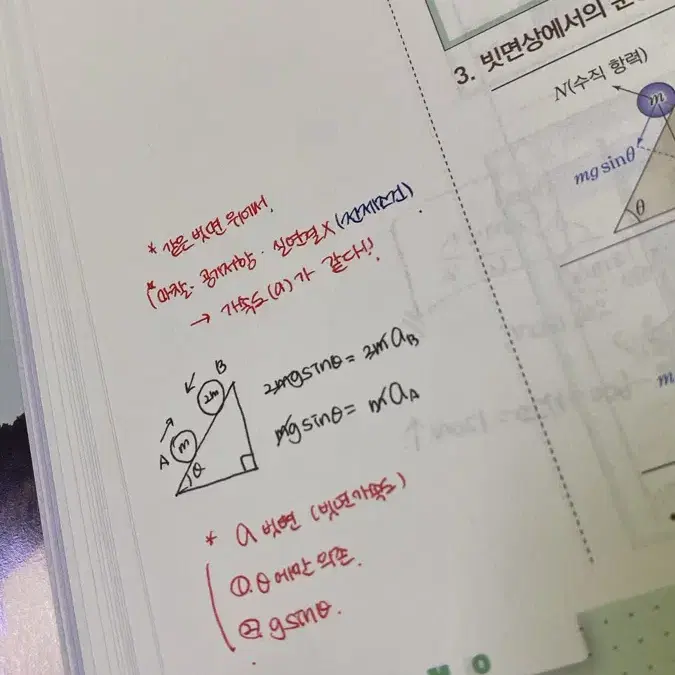 * 같은 빗면 위에서!
* (마찰·공기저항·실연결X (전제조건)
→ 가속도(a)가 같다!!
B
2m
A
m
θ
2mgsinθ = 2maB
mgsinθ = maA
* a빗면 (빗면가속도)
①. θ에만 의존.
②. gsinθ.
3. 빗면상에서의
N(수직 항력)
m
mg sinθ
θ
m
M O